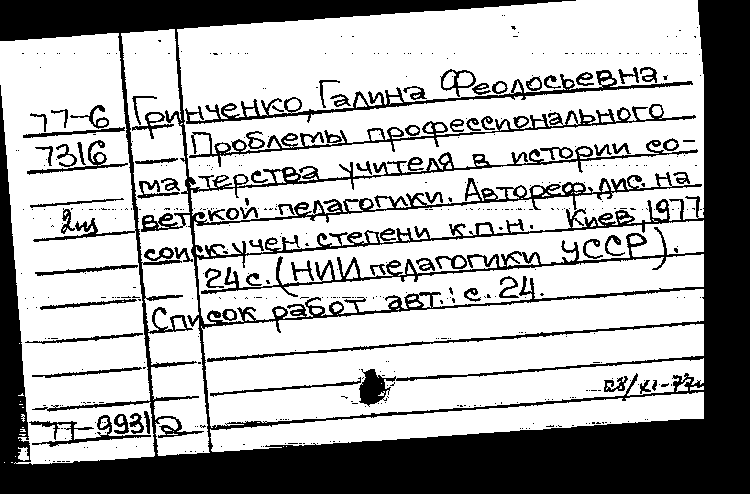 77-6 Гринченко, Галина Феодосьевна.
7316 Проблемы профессионального
мастерства учителя в истории со-
2 ветской педагогики. Автореф. дис. на
соиск. учен. степени к.п.н. Киев, 1977.
24 с. (НИИ педагогики УССР).
Список работ авт.: с. 24.
77-9931